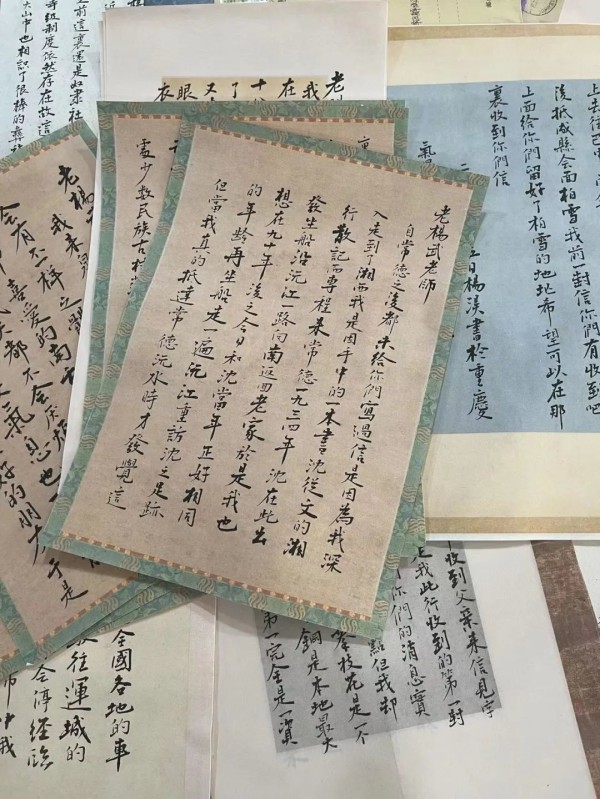 老楊武老師
自常德之後都未給你們寫過信是因為我深
入走到了湘西我是因手中的一本書沈從文的湘
行散記而專程来常德一九三四年沈在此出
發坐船沿沅江一路向南返回老家於是我也
想在九十年後之今日和沈當年正好相同
的年齡再坐船走一遍沅江重訪沈之足跡
但當我真的抵達常德沅水時才發覺這
處少數民族古
上去往巴中
後抵成縣会面柏雪我前一封信你們有收到吧
上面给你們留好了柏雪的地址希望可以在那
裏收到你們信
日楊淏書於重慶
老
我
在
十
了
又
眼
衣
前這裏還是奴隶社
等级制度依然存在故這
大山中也相識了很棒的彝
老楊
我来泉
会有不一樣之
喜爱的南
都不会
天氣息也一
好的朋友于是
收到父亲来信見字
上我此行收到的第一對
你們的消息實
點但我却
攀枝花是一不
鋼是本地最大
第一完全是一資
全國各地的車
往運城的
会停經臨
中我